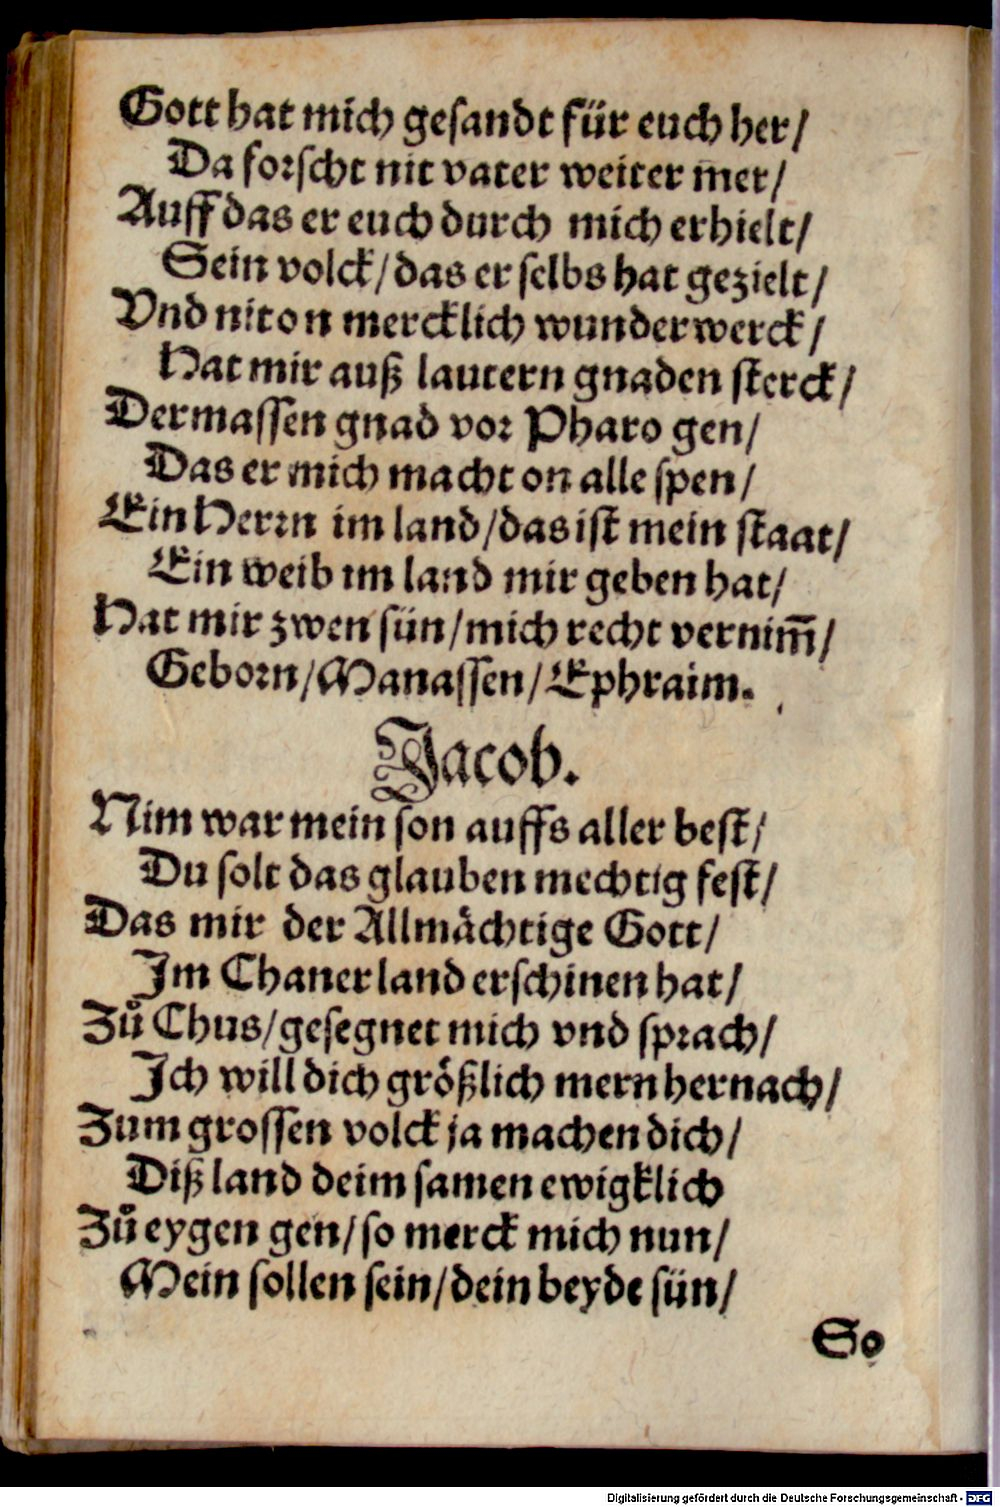 Gott hat mich gesandt für euch her/
Da forscht nit vater weiter mer/
Auff das er euch durch mich erhielt/
Sein volck/das er selbs hat gezielt/
Vnd nit on mercklich wunderwerck/
Hat mir auß lautern gnaden sterck/
Dermassen gnad vor Pharo gen/
Das er mich macht on alle spen/
Ein Herrn im land/das ist mein staat/
Ein weib im land mir geben hat/
Hat mir zwen sün/mich recht vernim̄/
Geborn/Manassen/Ephraim.
Jacob.
Nim war mein son auffs aller best/
Du solt das glauben mechtig fest/
Das mir der Allmächtige Gott/
Im Chanerland erschinen hat/
Zů Chus/gesegnet mich vnd sprach/
Ich will dich größlich mern hernach/
Zum grossen volck ja machen dich/
Diß land deim samen ewigklich
Zů eygen gen/so merck mich nun/
Mein sollen sein/dein beyde sün/
So
Digitalisierung gefördert durch die Deutsche Forschungsgemeinschaft - DFG